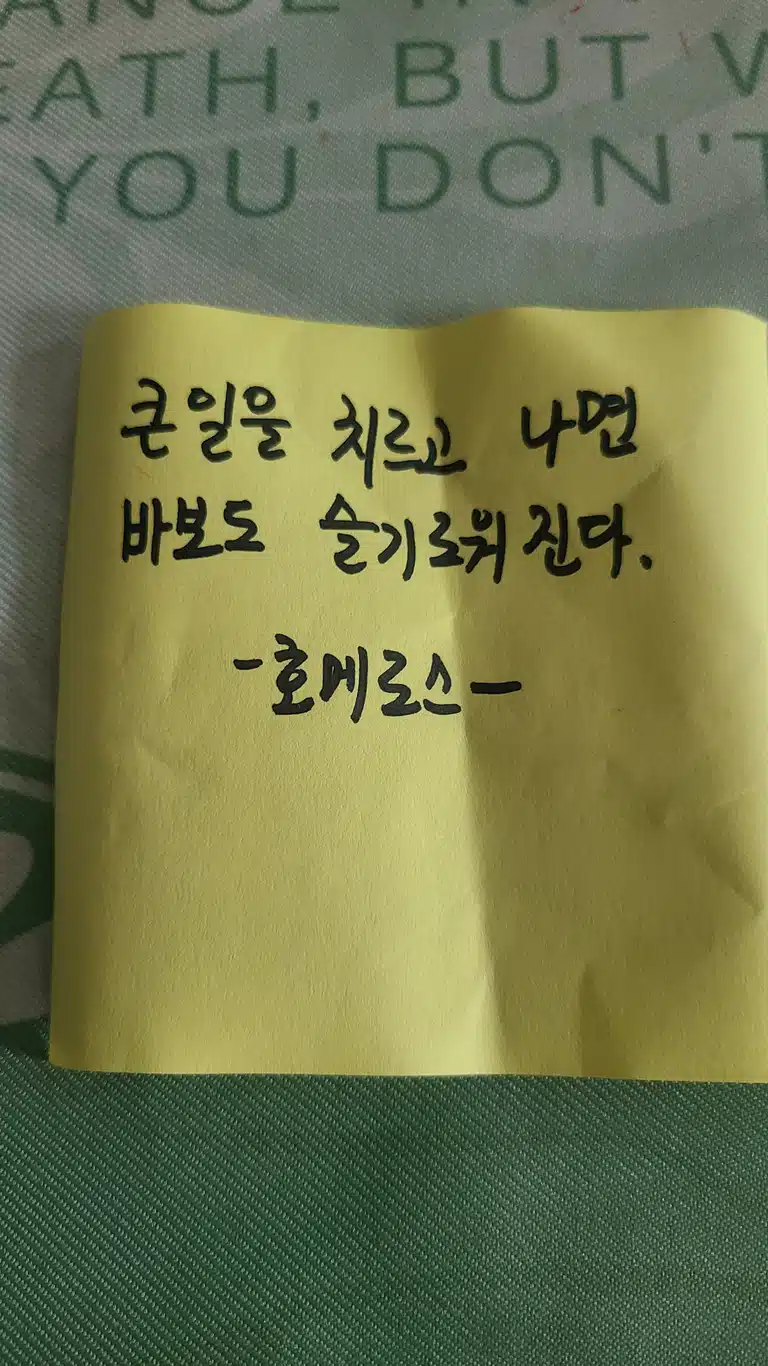 ANCE IN
EATH, BUT W
YOU DON'T
큰일을 치르고 나면
바보도 슬기로워진다.
-호메로스-